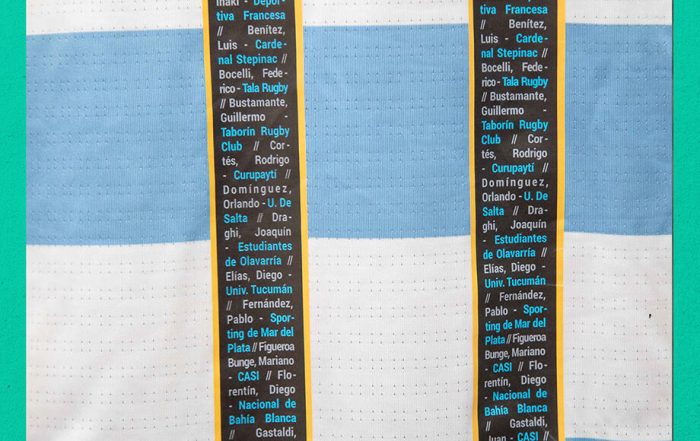 Iñaki - Depor-
tiva Francesa
// Benítez,
Luis - Carde-
nal Stepinac //
Bocelli, Fede-
rico - Tala Rugby
// Bustamante,
Guillermo -
Taborín Rugby
Club // Cor-
tés, Rodrigo
- Curupaytí //
Domínguez,
Orlando - U. De
Salta // Dra-
ghi, Joaquín
- Estudiantes
de Olavarría //
Elías, Diego -
Univ. Tucumán
// Fernández,
Pablo - Spor-
ting de Mar del
Plata // Figueroa
Bunge, Mariano
- CASI // Flo-
rentín, Diego
- Nacional de
Bahía Blanca
// Gastaldi,
tiva Francesa
// Benítez,
Luis - Carde-
nal Stepinac //
Bocelli, Fede-
rico - Tala Rugby
// Bustamante,
Guillermo -
Taborín Rugby
Club // Cor-
tés, Rodrigo
- Curupaytí //
Domínguez,
Orlando - U. De
Salta // Dra-
ghi, Joaquín
- Estudiantes
de Olavarría //
Elías, Diego -
Univ. Tucumán
// Fernández,
Pablo - Spor-
ting de Mar del
Plata // Figueroa
Bunge, Mariano
- CASI // Flo-
rentín, Diego
- Nacional de
Bahía Blanca
// Gastaldi,
Juan - CASI //